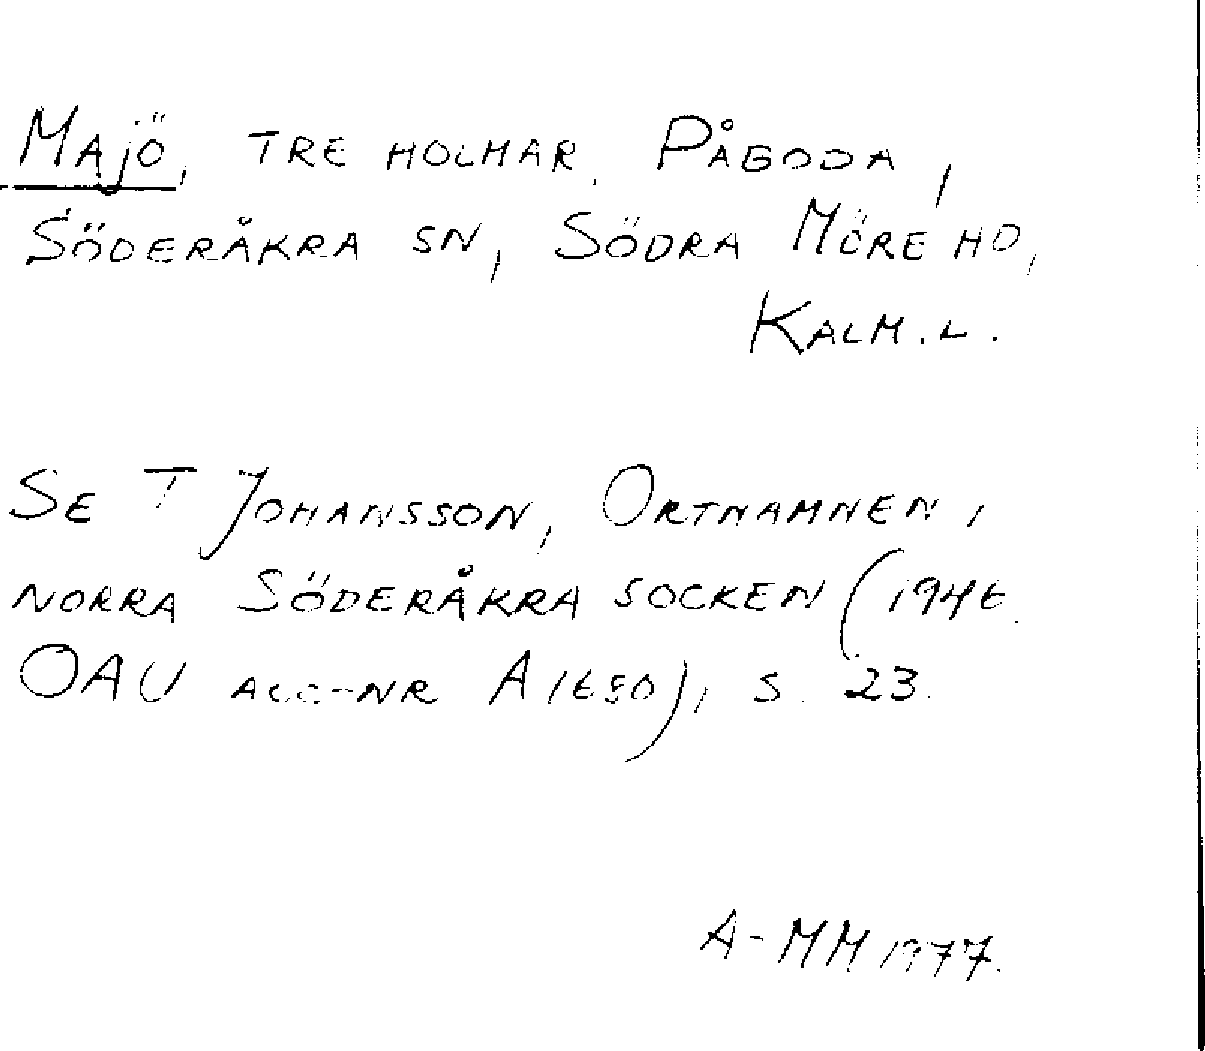 Majö, tre holmar. Pågoda,
Söderåkra sn, Södra Möre hd,
Kalm. l.
Se T Johansson, Ortnamnen i
norra Söderåkra socken (1946.
OAU acc-nr A 1650), s. 23.
A-MM 1977.